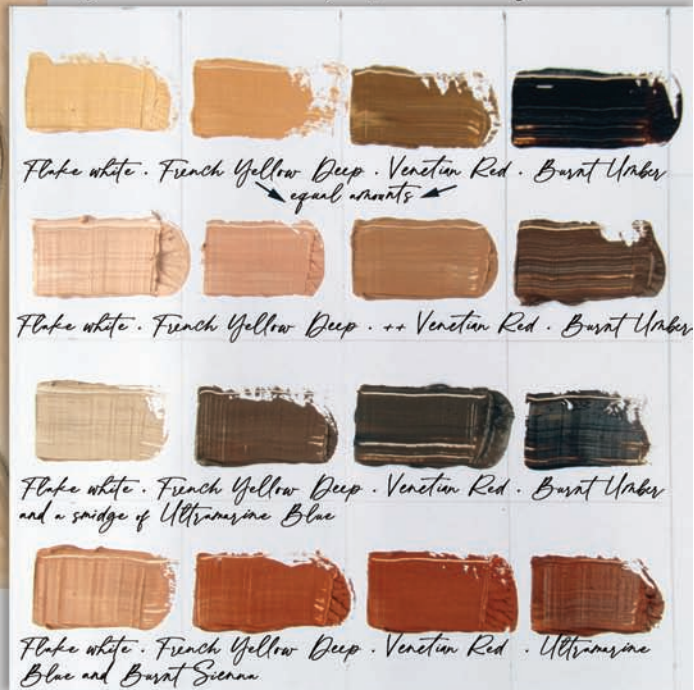 Flake white . French Yellow Deep . Venetian Red . Burnt Umber
equal amounts
Flake white . French Yellow Deep . ++ Venetian Red . Burnt Umber
Flake white . French Yellow Deep . Venetian Red . Burnt Umber
and a smidge of Ultramarine Blue
Flake white . French Yellow Deep . Venetian Red . Ultramarine
Blue and Burnt Sienna